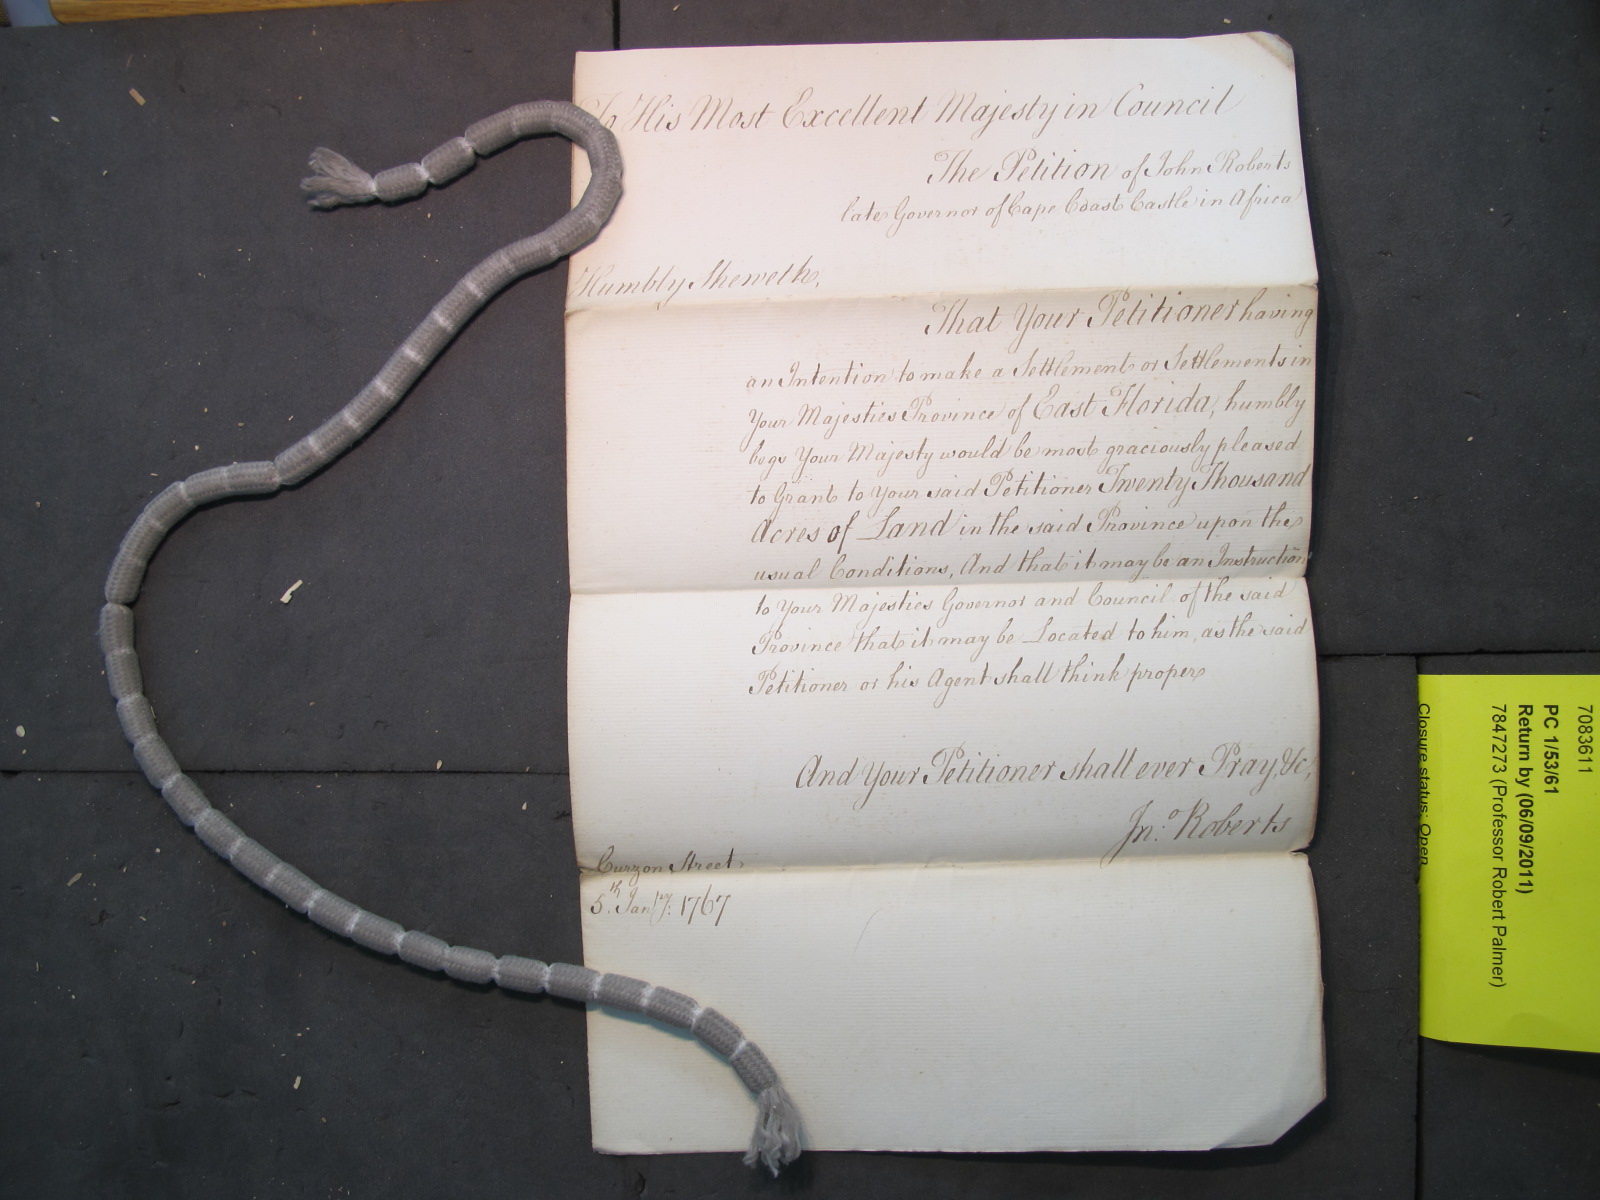 To His Most Excellent Majesty in Council
The Petition of John Roberts
late Governor of Cape Coast Castle in Africa
Humbly Sheweth,
That Your Petitioner having
an Intention to make a Settlement or Settlements in
Your Majesties Province of East Florida, humbly
begs Your Majesty would be most graciously pleased
to Grant to Your said Petitioner Twenty Thousand
Acres of Land in the said Province upon the
usual Conditions, And that it may be an Instruction
to Your Majesties Governor and Council of the said
Province that it may be Located to him, as the said
Petitioner or his Agent shall think proper
And Your Petitioner shall ever Pray, &c;
Jn:o Roberts
Curzon Street
5th Janry: 1767
7083611
PC 1/53/61
Return by (06/09/2011)
7847273 (Professor Robert Palmer)
Closure status: Open